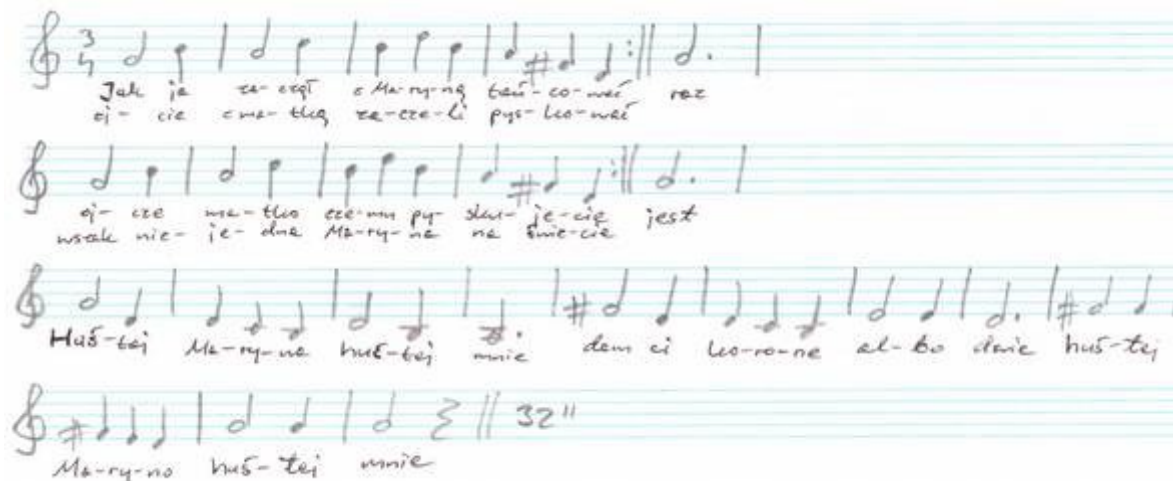 3/4
Jak ja za-czął z Ma-ry-ną tań-co-wać raz
oj-cie z ma-tką za-cze-li pys-ko-wać
oj-cze ma-tko cze-mu py-sku-je-cie jest
wszak nie-je-dna Ma-ry-na na świe-cie
Huś-taj Ma-ry-na huś-taj mnie dam ci ko-ro-ne al-bo dwie huś-taj
Ma-ry-no huś-taj mnie
32"